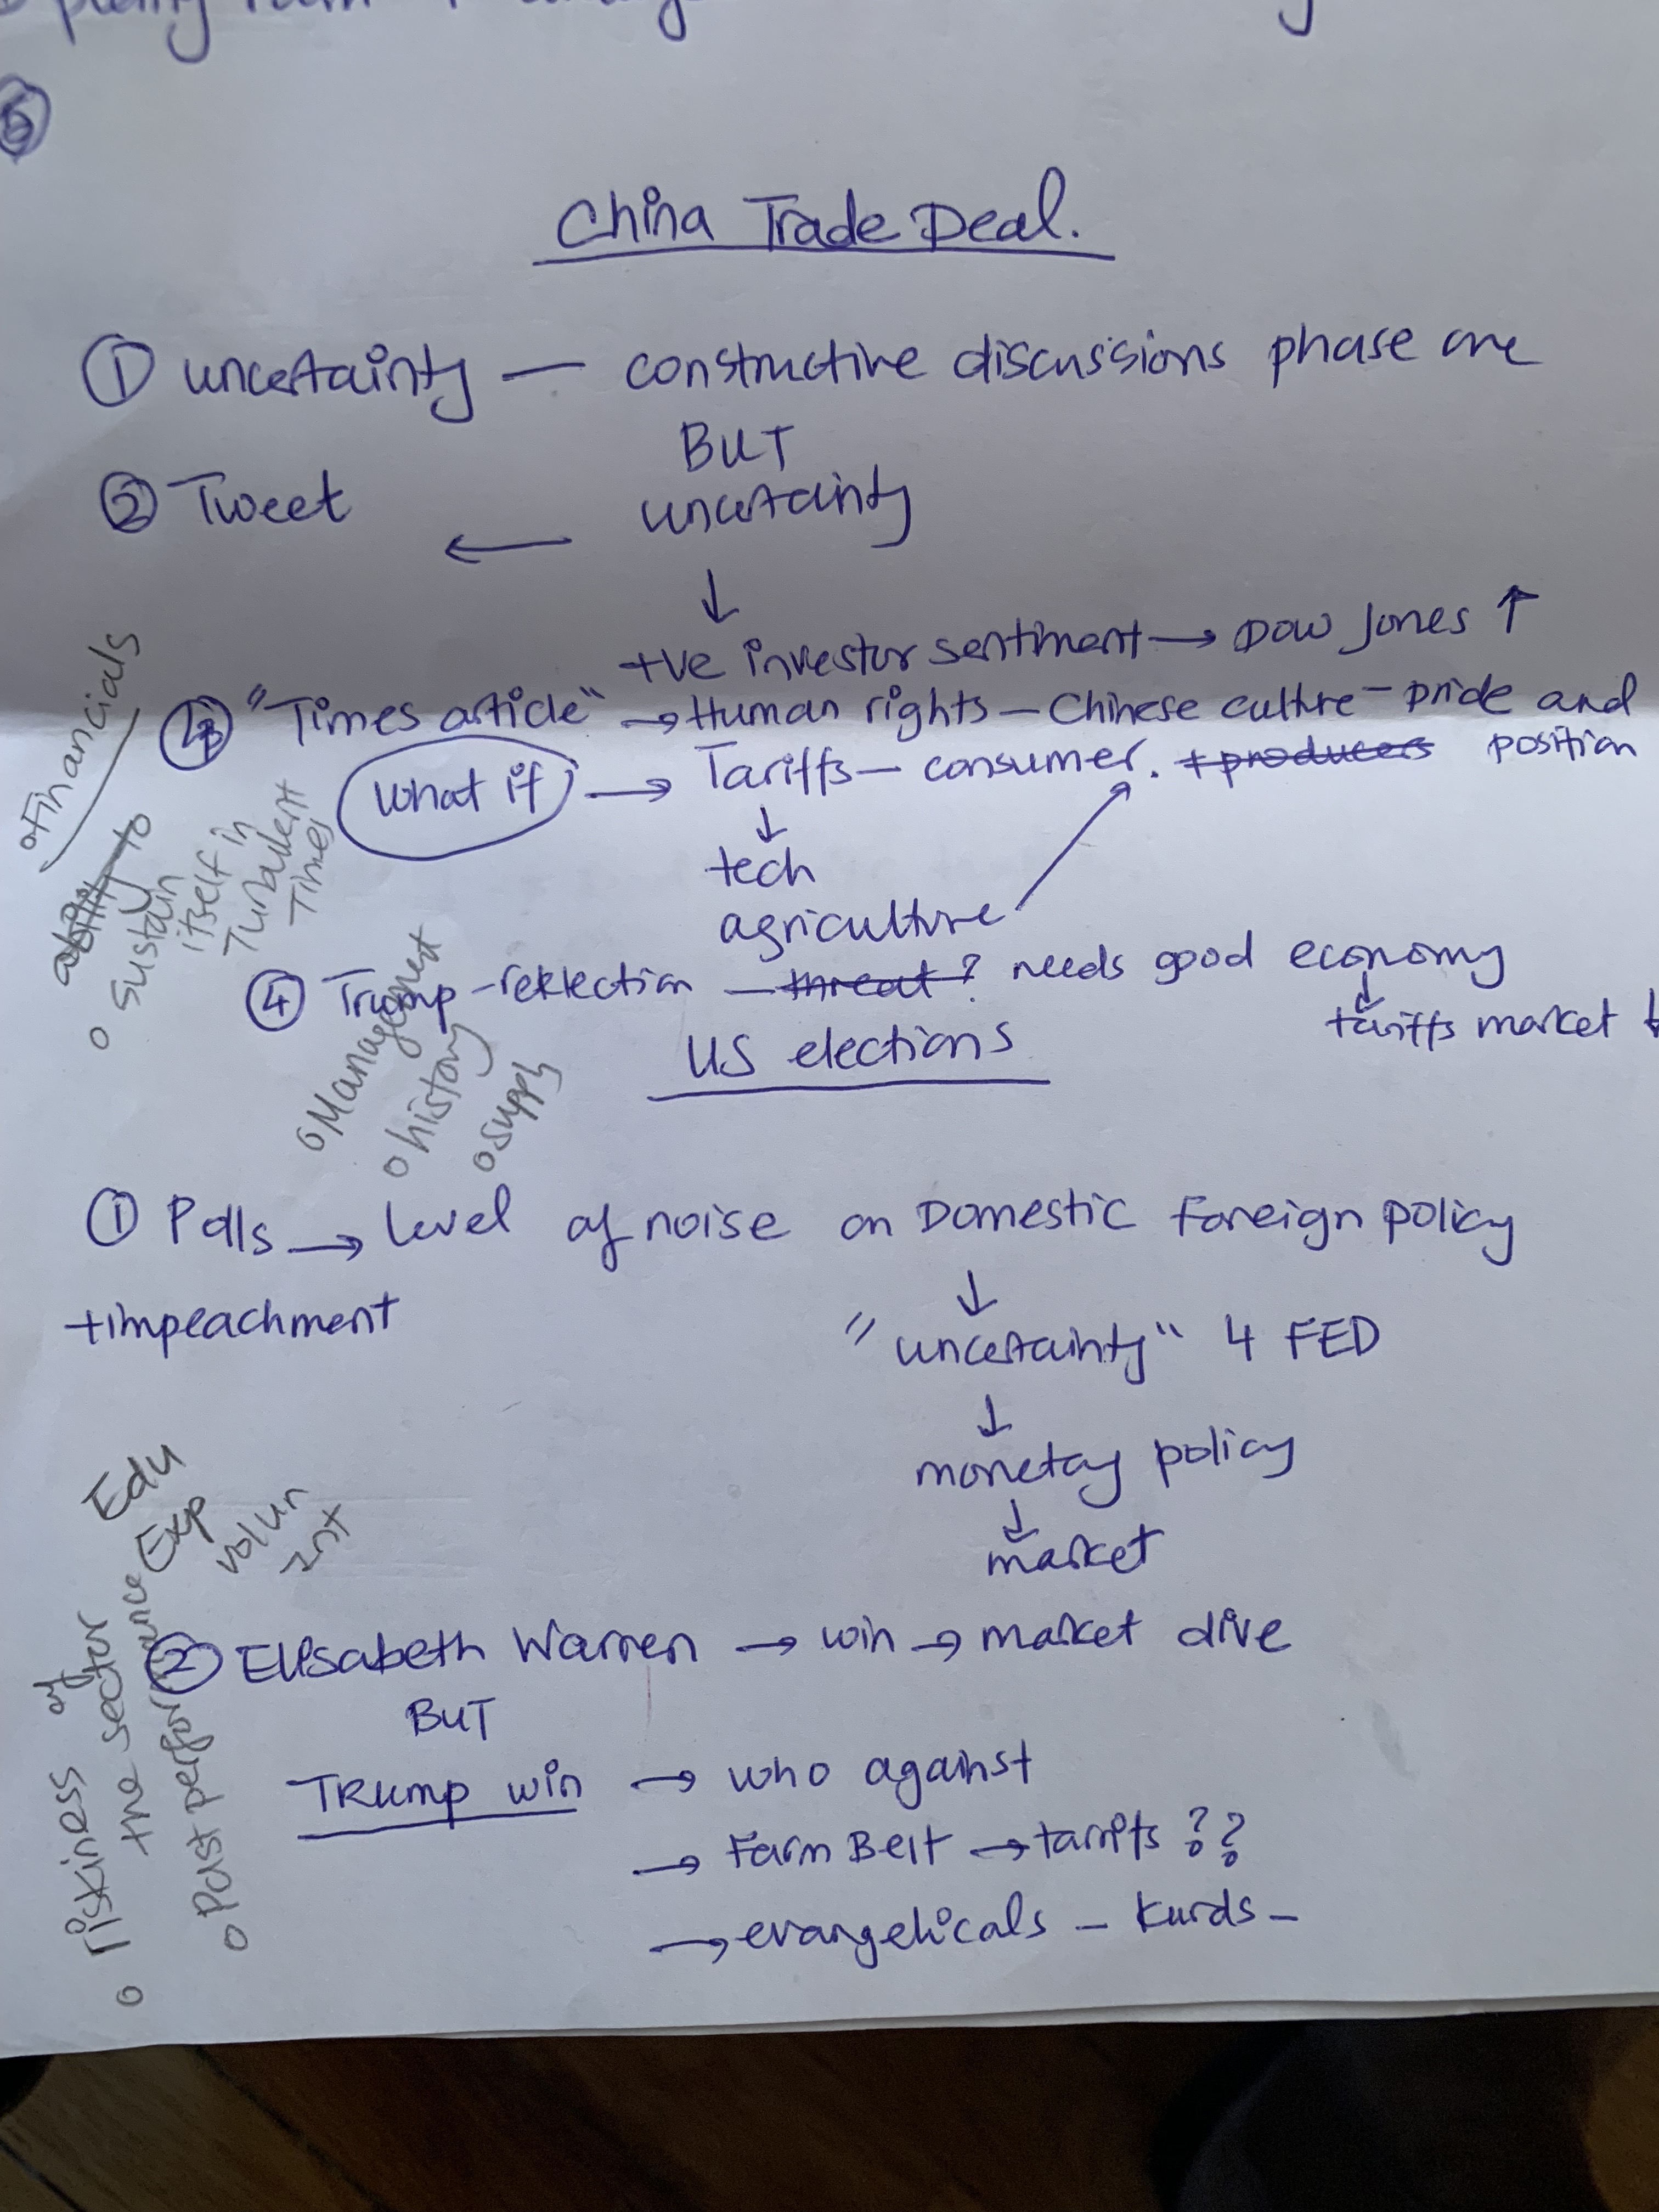 ⑤
China Trade Deal.
① uncertainty — constructive discussions phase one
BUT
② Tweet ← uncertainty
↓
+ve investor sentiment → Dow Jones ↑
"Times article" → Human rights — Chinese culture — pride and position
What if → Tariffs — consumer. + producers
↓
tech
agriculture
④ Trump - reelection — threat ? needs good economy
↓
tariffs market ↓
US elections
① Polls → Level of noise on Domestic Foreign policy
+impeachment
↓
"uncertainty" 4 FED
↓
monetay policy
↓
market
② Elisabeth Warren → win → market dive
BUT
TRUMP win → who against
→ Farm Belt → tarrifs ??
→ evangelicals – Kurds –
o Financials
ability to
o Sustain
itself in
Turbulent
Times
o Management
o history
o supply
Edu
Exp
volun
Int
o riskiness of
the sector
o Past performance